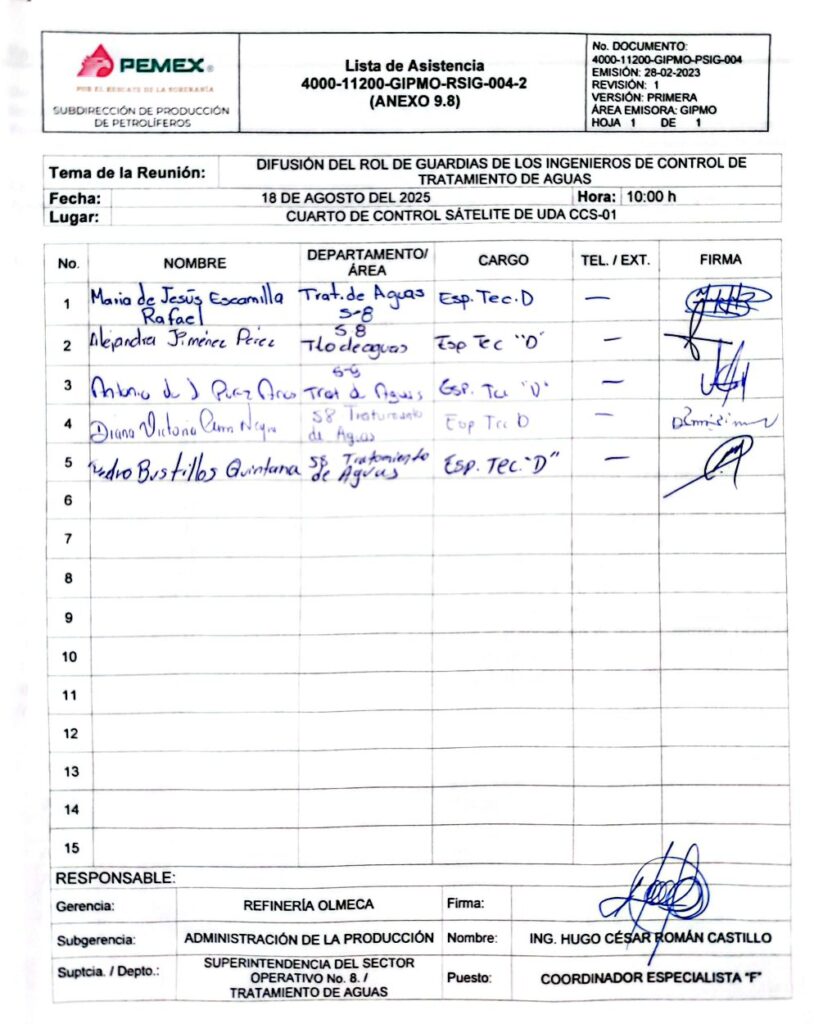 PEMEX®
POR EL RESCATE DE LA SOBERANÍA
SUBDIRECCIÓN DE PRODUCCIÓN
DE PETROLÍFEROS
Lista de Asistencia
4000-11200-GIPMO-RSIG-004-2
(ANEXO 9.8)
No. DOCUMENTO:
4000-11200-GIPMO-PSIG-004
EMISIÓN: 28-02-2023
REVISIÓN: 1
VERSIÓN: PRIMERA
ÁREA EMISORA: GIPMO
HOJA 1 DE 1
Tema de la Reunión: DIFUSIÓN DEL ROL DE GUARDIAS DE LOS INGENIEROS DE CONTROL DE
TRATAMIENTO DE AGUAS
Fecha: 18 DE AGOSTO DEL 2025 Hora: 10:00 h
Lugar: CUARTO DE CONTROL SÁTELITE DE UDA CCS-01
No. NOMBRE DEPARTAMENTO/ CARGO TEL. / EXT. FIRMA
ÁREA
1 Maria de Jesús Escamilla Trat. de Aguas Esp. Tec. D —
Rafael S-8
2 Alejandra Jiménez Pérez S 8 Esp Tec "D" —
Tto de aguas
3 Antonio de J S-8 Esp. Tec "D" —
Trat de Aguas
4 Diana Victoria S8 Tratamiento Esp Tec D —
de Aguas
5 Pedro Bustillos Quintana S8 Tratamiento Esp. Tec. "D" —
de Aguas
6
7
8
9
10
11
12
13
14
15
RESPONSABLE:
Gerencia: REFINERÍA OLMECA Firma:
Subgerencia: ADMINISTRACIÓN DE LA PRODUCCIÓN Nombre: ING. HUGO CÉSAR ROMÁN CASTILLO
Suptcia. / Depto.: SUPERINTENDENCIA DEL SECTOR
OPERATIVO No. 8. /
TRATAMIENTO DE AGUAS
Puesto: COORDINADOR ESPECIALISTA "F"